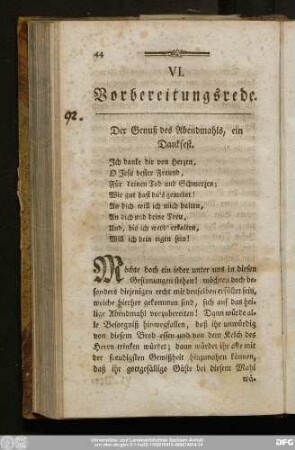 44
VI.
Vorbereitungsrede.
92.
Der Genuß des Abendmahls, ein
Dankfest.
Ich danke dir von Herzen,
O Jesu bester Freund,
Für deinen Tod und Schmerzen;
Wie gut hast du's gemeint!
An dich will ich mich halten,
An dich und deine Treu,
Und, bis ich werd' erkalten,
Will ich dein eigen seyn!
Möchte doch ein jeder unter uns in diesen
Gesinnungen stehen! möchten doch be-
sonders diejenigen recht mit denselben erfüllet seyn,
welche hierher gekommen sind, sich auf das hei-
lige Abendmahl vorzubereiten! Dann würde al-
le Besorgniß hinwegfallen, daß ihr unwürdig
von diesem Brod essen und von dem Kelch des
Herrn trinken würdet; dann würdet ihr alle mit
der freudigsten Gewißheit hinzunahen können,
daß ihr gottgefällige Gäste bei diesem Mahl
wä-
Universitäts- und Landesbibliothek Sachsen-Anhalt